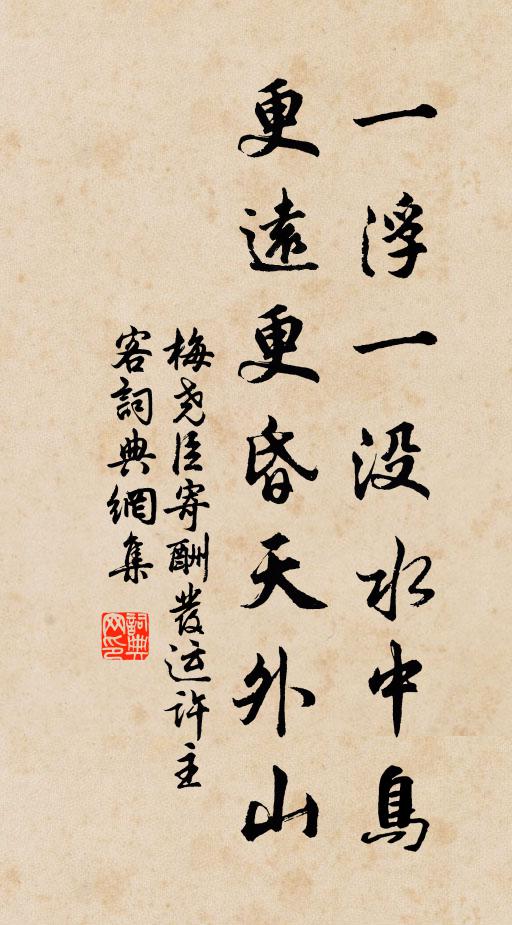 一浮一没水中鳥
更遠更昏天外山
梅尧臣寄酬發运许主
客詞典網集
詞典
网印